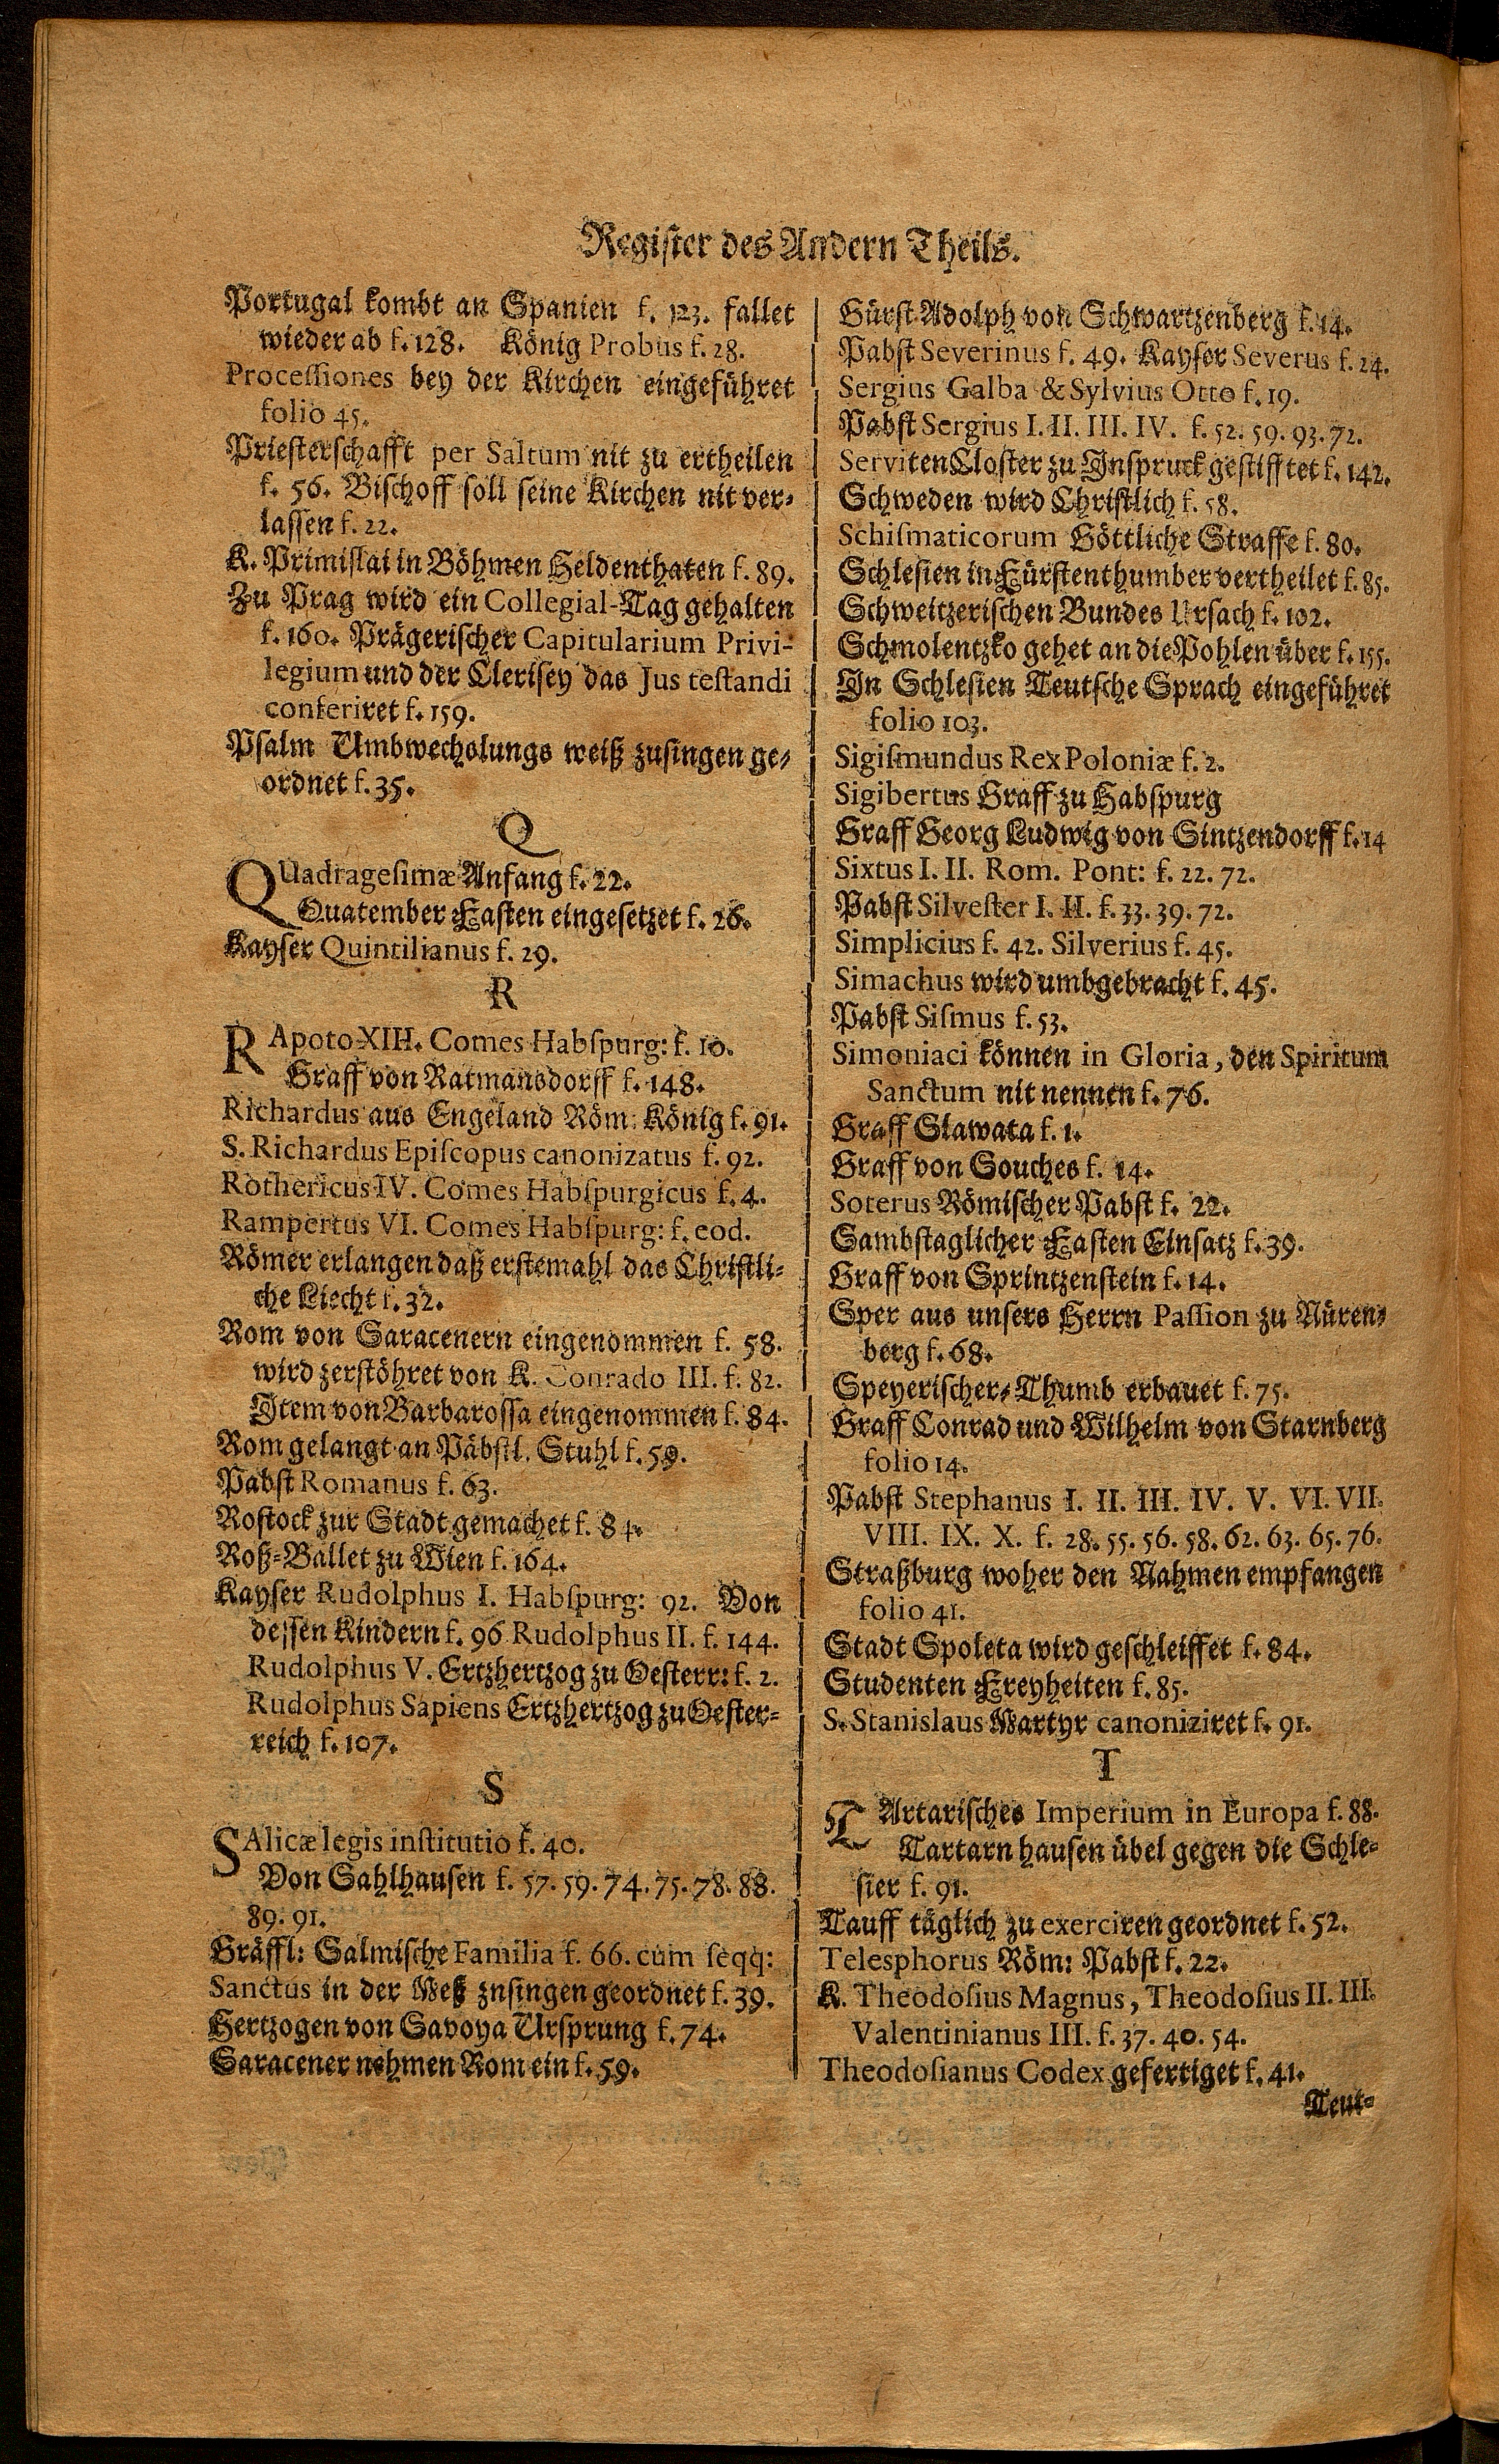 Register des Andern Theils.
Portugal kombt an Spanien f. 123. fallet
wieder ab f. 128. König Probus f. 28.
Processiones bey der Kirchen eingeführet
folio 45.
Priesterschafft per Saltum nit zu ertheilen
f. 56. Bischoff soll seine Kirchen nit ver-
lassen f. 22.
K. Primislai in Böhmen Heldenthaten f. 89.
Zu Prag wird ein Collegial-Tag gehalten
f. 160. Prägerischer Capitularium Privi-
legium und der Clerisey das Jus testandi
conferiret f. 159.
Psalm Umbwechslungs weiß zusingen ge-
ordnet f. 35.
Q
QUadragesimæ Anfang f. 22.
Quatember Fasten eingesetzet f. 26.
Kayser Quintilianus f. 29.
R
RApoto XIII. Comes Habspurg: f. 10.
Graff von Ratmansdorff f. 148.
Richardus aus Engeland Röm: König f. 91.
S. Richardus Episcopus canonizatus f. 92.
Rothericus IV. Comes Habspurgicus f. 4.
Rampertus VI. Comes Habspurg: f. eod.
Römer erlangen daß erstemahl das Christli-
che Liecht f. 32.
Rom von Saracenern eingenommen f. 58.
wird zerstöhret von K. Conrado III. f. 82.
Item von Barbarossa eingenommen f. 84.
Rom gelangt an Päbstl. Stuhl f. 59.
Pabst Romanus f. 63.
Rostock zur Stadt gemachet f. 84.
Roß-Ballet zu Wien f. 164.
Kayser Rudolphus I. Habspurg: 92. Von
dessen Kindern f. 96. Rudolphus II. f. 144.
Rudolphus V. Ertzhertzog zu Oesterr: f. 2.
Rudolphus Sapiens Ertzhertzog zu Oester-
reich f. 107.
S
SAlicæ legis institutio f. 40.
Von Sahlhausen f. 57. 59. 74. 75. 78. 88.
89. 91.
Gräffl: Salmische Familia f. 66. cum seqq:
Sanctus in der Meß zusingen geordnet f. 39.
Hertzogen von Savoya Ursprung f. 74.
Saracener nehmen Rom ein f. 59.
Fürst Adolph von Schwartzenberg f. 14.
Pabst Severinus f. 49. Kayser Severus f. 24.
Sergius Galba & Sylvius Otto f. 19.
Pabst Sergius I. II. III. IV. f. 52. 59. 93. 72.
Serviten Closter zu Inspruck gestifftet f. 142.
Schweden wird Christlich f. 58.
Schismaticorum Göttliche Straffe f. 80.
Schlesien in Fürstenthumber vertheilet f. 85.
Schweitzerischen Bundes Ursach f. 102.
Schmolentzko gehet an die Pohlen über f. 155.
In Schlesien Teutsche Sprach eingeführet
folio 103.
Sigismundus Rex Poloniæ f. 2.
Sigibertus Graff zu Habspurg
Graff Georg Ludwig von Sintzendorff f. 14
Sixtus I. II. Rom. Pont: f. 22. 72.
Pabst Silvester I. II. f. 33. 39. 72.
Simplicius f. 42. Silverius f. 45.
Simachus wird umbgebracht f. 45.
Pabst Sismus f. 53.
Simoniaci können in Gloria, den Spiritum
Sanctum nit nennen f. 76.
Graff Slawata f. 1.
Graff von Souches f. 14.
Soterus Römischer Pabst f. 22.
Sambstaglicher Fasten Einsatz f. 39.
Graff von Sprintzenstein f. 14.
Sper aus unsers Herrn Passion zu Nüren-
berg f. 68.
Speyerischer-Thumb erbauet f. 75.
Graff Conrad und Wilhelm von Starnberg
folio 14.
Pabst Stephanus I. II. III. IV. V. VI. VII.
VIII. IX. X. f. 28. 55. 56. 58. 62. 63. 65. 76.
Straßburg woher den Nahmen empfangen
folio 41.
Stadt Spoleta wird geschleiffet f. 84.
Studenten Freyheiten f. 85.
S. Stanislaus Martyr canoniziret f. 91.
T
TArtarisches Imperium in Europa f. 88.
Tartarn hausen übel gegen die Schle-
sier f. 91.
Tauff täglich zu exerciren geordnet f. 52.
Telesphorus Röm: Pabst f. 22.
K. Theodosius Magnus, Theodosius II. III.
Valentinianus III. f. 37. 40. 54.
Theodosianus Codex gefertiget f. 41.
Teut-